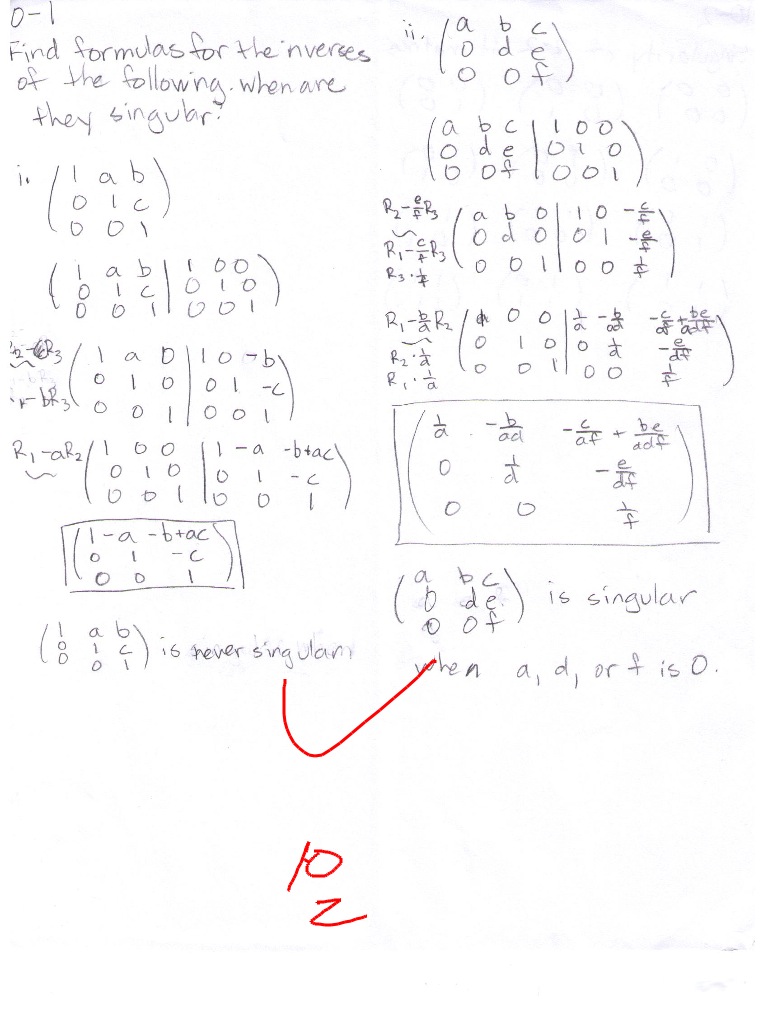 0-1
Find formulas for the inverses
of the following. when are
they singular?
i. ( 1 a b
0 1 c
0 0 1 )
( 1 a b | 1 0 0
0 1 c | 0 1 0
0 0 1 | 0 0 1 )
( 1 a 0 | 1 0 -b
0 1 0 | 0 1 -c
0 0 1 | 0 0 1 )
R1-aR2 ( 1 0 0 | 1 -a -b+ac
0 1 0 | 0 1 -c
0 0 1 | 0 0 1 )
( 1 -a -b+ac
0 1 -c
0 0 1 )
( 1 a b
0 1 c
0 0 1 ) is never singular.
ii. ( a b c
0 d e
0 0 f )
( a b c | 1 0 0
0 d e | 0 1 0
0 0 f | 0 0 1 )
R2-e/f R3
R1-c/f R3
R3·1/f
( a b 0 | 1 0 -c/f
0 d 0 | 0 1 -e/f
0 0 1 | 0 0 1/f )
R1-b/d R2
R2·1/d
R1·1/a
( 1 0 0 | 1/a -b/ad -c/af+be/adf
0 1 0 | 0 1/d -e/df
0 0 1 | 0 0 1/f )
( 1/a -b/ad -c/af + be/adf
0 1/d -e/df
0 0 1/f )
( a b c
0 d e
0 0 f ) is singular
when a, d, or f is 0.
10
2